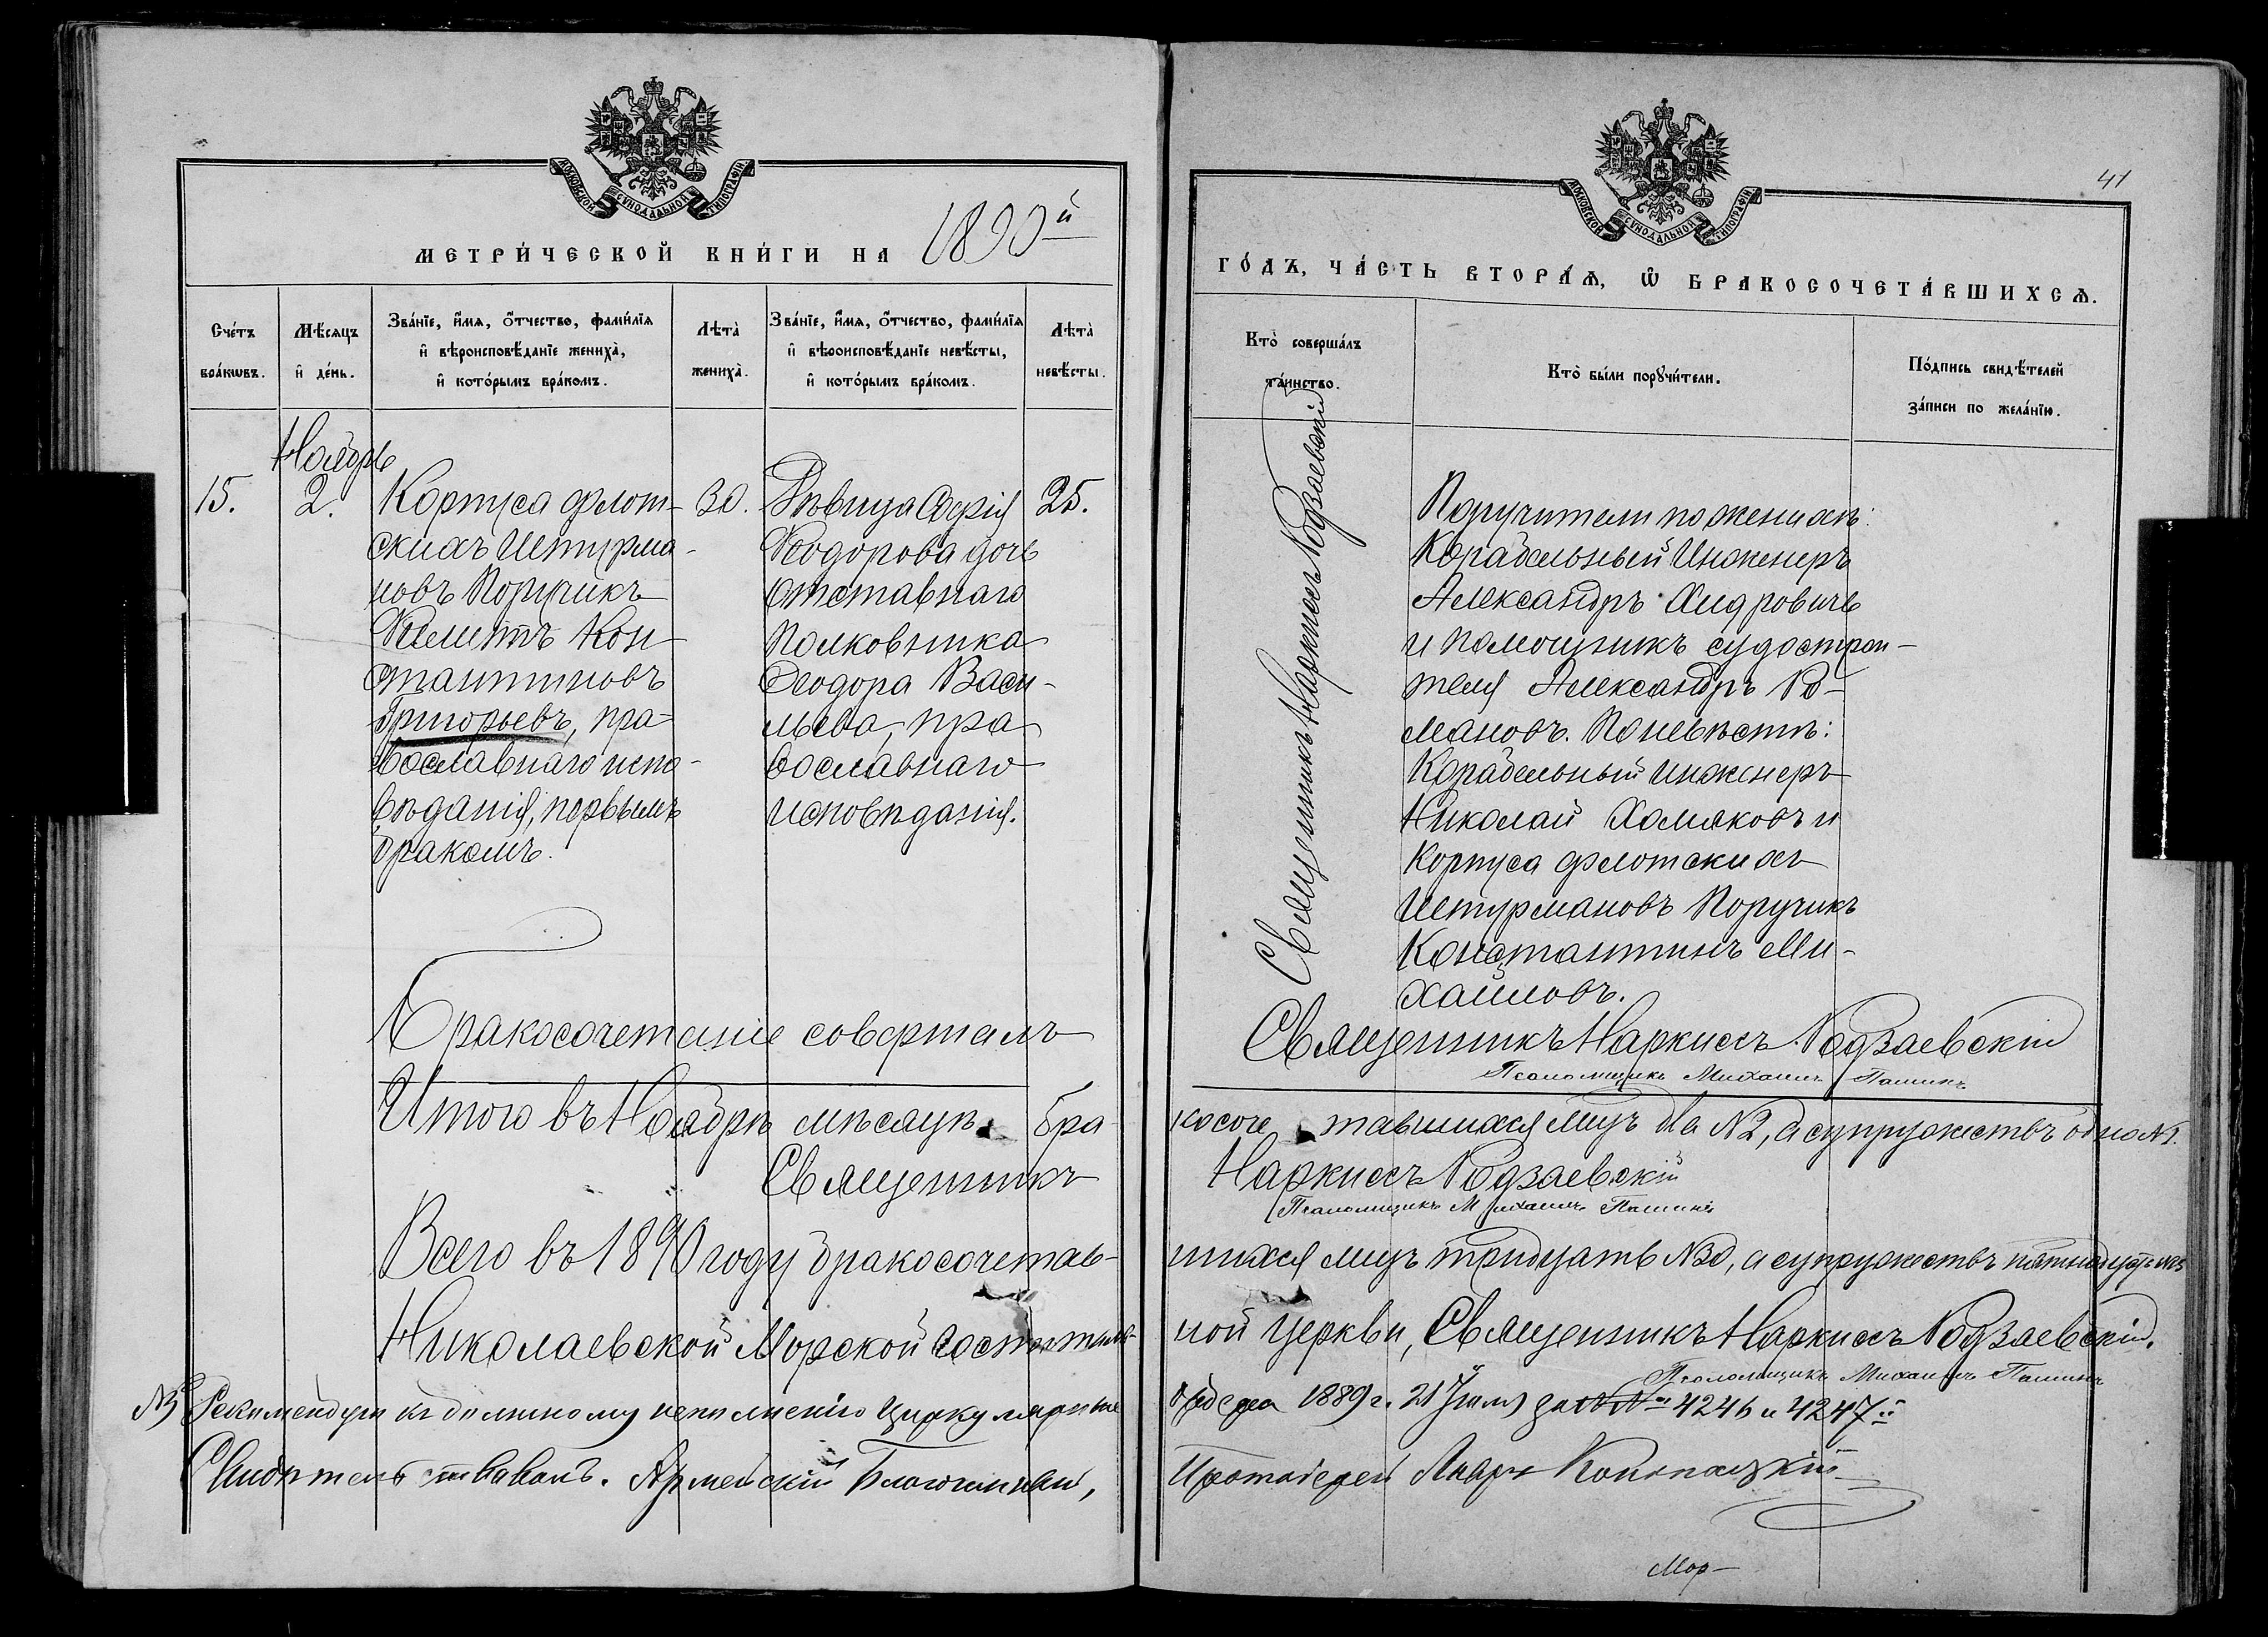 МОСКОВСКОЙ СѴНОДАЛЬНОЙ ТИПОГРАФІИ
МЕТРИ́ЧЕСКОЙ КНИ́ГИ НА 1890й
Сче́тъ бра́кѡвъ.
Мѣ́сяцъ и҆ де́нь.
Зва́нїе, и҆́мѧ, ѻ҆́тчество, фами́лїѧ и҆ вѣроисповѣ́данїе жениха̀, и҆ кото́рымъ бра́комъ.
Лѣ́та̀ жениха̀.
Зва́нїе, и҆́мѧ, ѻ҆́тчество, фами́лїѧ и҆ вѣроисповѣ́данїе невѣ́сты, и҆ кото́рымъ бра́комъ.
Лѣ́та̀ невѣ́сты.
Ноябрь
15.
2.
Корпуса флот-
скихъ Штурма-
новъ Поручикъ
Филиппъ Кон-
стантиновъ
Григорьевъ, пра-
вославнаго испо-
вѣданія, первымъ
бракомъ.
30.
Дѣвица Софія
Ѳеодорова дочь
отставнаго
Полковника
Ѳеодора Васи-
льева, пра
вославнаго
исповѣданія.
25.
Бракосочетаніе совершалъ
Итого въ Ноябрѣ мѣсяцѣ бра
Священникъ
Всего въ 1890 году бракосочетав-
Николаевской Морской Госпиталь-
NB Рекомендуя къ должному исполненію Циркулярные
Свидѣтельствовалъ. Армейскій Благочинный,
41
МОСКОВСКОЙ СѴНОДАЛЬНОЙ ТИПОГРАФІИ
ГО́ДЪ, ЧА́СТЬ ВТОРА́Ѧ, Ѡ҆ БРАКОСОЧЕТА́ВШИХСѦ.
Кто̀ соверша́лъ та́инство.
Кто̀ бы́ли порꙋчи́тели.
По́дпись свидѣ́телей за́писи по жела́нїю.
Священникъ Наркиссъ Родзаевскій
Поручители по женихѣ:
Корабельный Инженеръ
Александръ Хидровичь
и помощникъ судострои-
теля Александръ Ро-
мановъ. По невѣстѣ:
Корабельный инженеръ
Николай Хомяковъ и
Корпуса флотскихъ
Штурмановъ Поручикъ
Константинъ Ми-
хайловъ.
Священникъ Наркиссъ Родзаевскій
Псаломщикъ Михаилъ Пашинъ
косоче тавшихся лицъ два №2, а супружествъ одно №1.
Наркиссъ Родзаевскій
Псаломщикъ Михаилъ Пашинъ
шихся лицъ тридцать №30, а супружествъ пятнадцать №15
ной церкви, Священникъ Наркиссъ Родзаевскій.
Псаломщикъ Михаилъ Пашинъ
1889 г. 21 за №№ 4246 и 4247й
Протоіерей Лавръ
Мор-